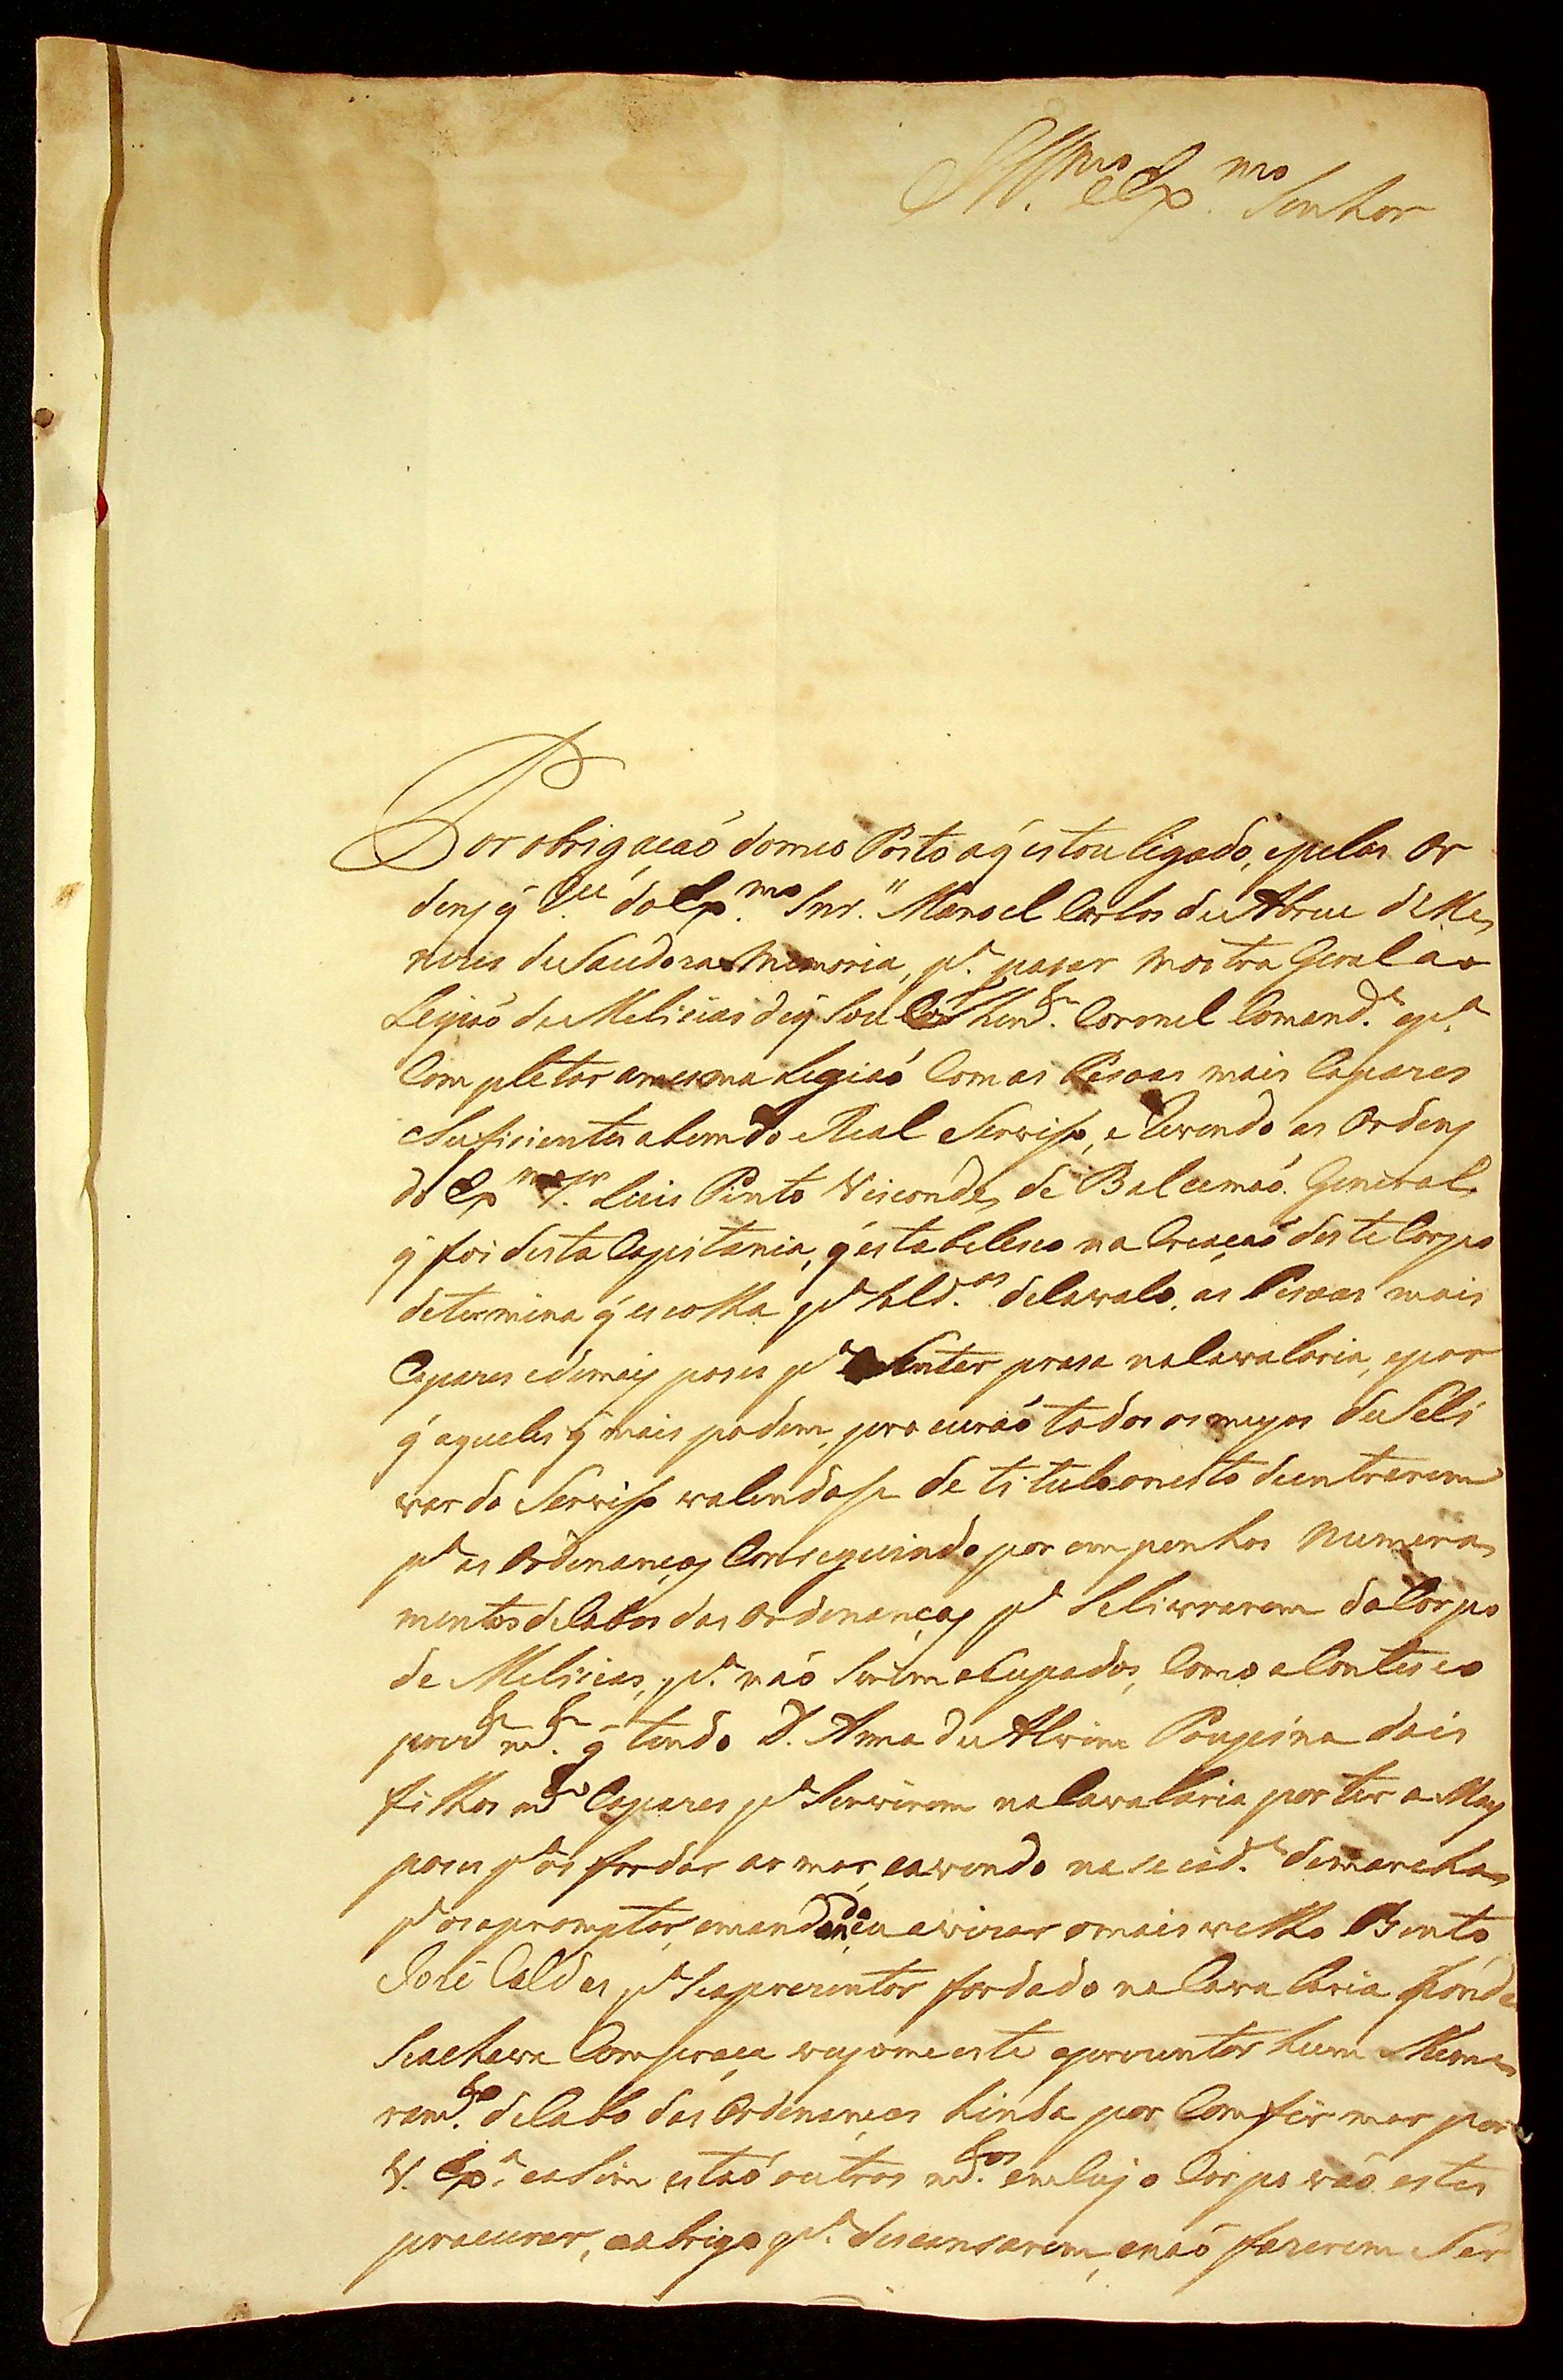 Ill.mo e Ex.mo Senhor
Por obrigacaõ domeo Posto aq̃ estou ligado, epelas Or
denz q̃ do Ex.mo Snr." Manoel Carlos de Abreu de Me
nezes de Saudoza Memoria, p.a pasar Mostra Geral a
Legiaõ de Melicias deq̃ Sou Ten.te Coronel Comand.e ep.a
Completar amesma Legiaõ Com as Pesoas mais Capazes
e Suficientes abem do Real Servisso, e devendo as Ordenz
do Ex.mo Sr. Luis Pinto Visconde de Balcemaõ General
q̃ foi desta Capitania, q̃ estabeleseo na Creaçaõ deste Corpo
determina q̃ escolha p.a Sold.os deCavalo, as Pesoas mais
Capazes edemais poses p.a Sentar prasa naCavalaria, epor
q̃ aqueles q̃ mais podem, procuraõ todos os meyos de Seli
vrar do Servisso valendosse de titulo onesto deentrarem
p.a as Ordenancas Conseguindo por empenhos Numera
mentos deCabos das Ordenanças p.a Selivrarem do Corpo
de Melicias, p.a naõ Serem oCupados, Como aConteseo
q̃ tendo D. Anna de Alvim Poupina dois
filhos m.to Capazes p.a Servirem naCavalaria por ter a May
poses p.a os fardar armar, eavendo nesecid.e demarchar
p.a osapromptar, emandando eu avizar omais velho Bento
José Caldas p.a Seaprezentar fardado na Cavalaria honde
Seachava Com praça veyome este aprezentar hum Nome
ram.to deCabo das Ordenanças hinda por Comfirmar por
V. Ex.a easim estaõ outros m.tos emCujo Corpo vaõ estes
procurar, oabrigo p.a descansarem, enaõ fazerem Ser